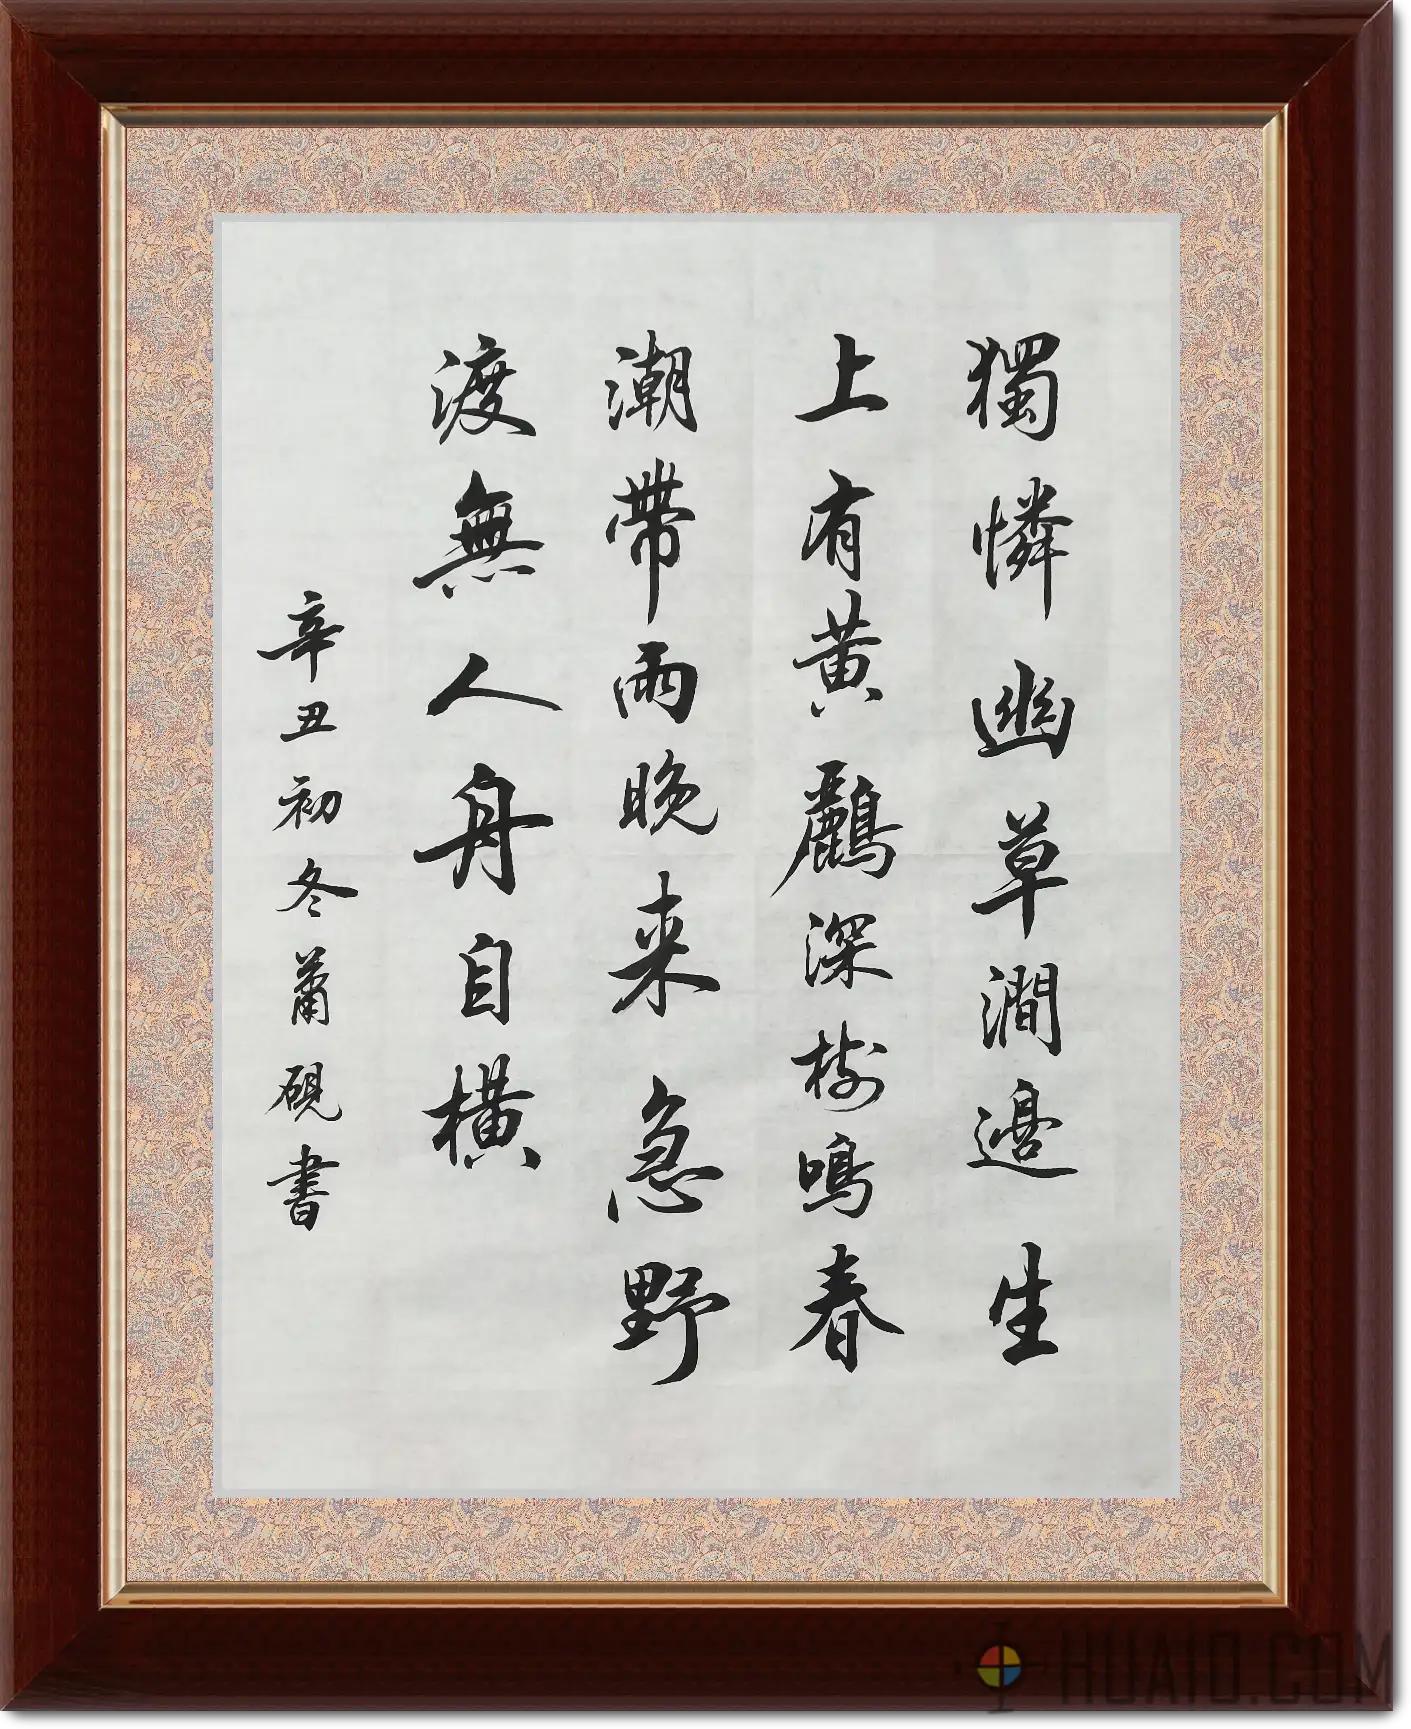 獨憐幽草澗邊生
上有黃鸝深樹鳴春
潮帶雨晚来急野
渡無人舟自橫
辛丑初冬蕭硯書
HUAIO.COM